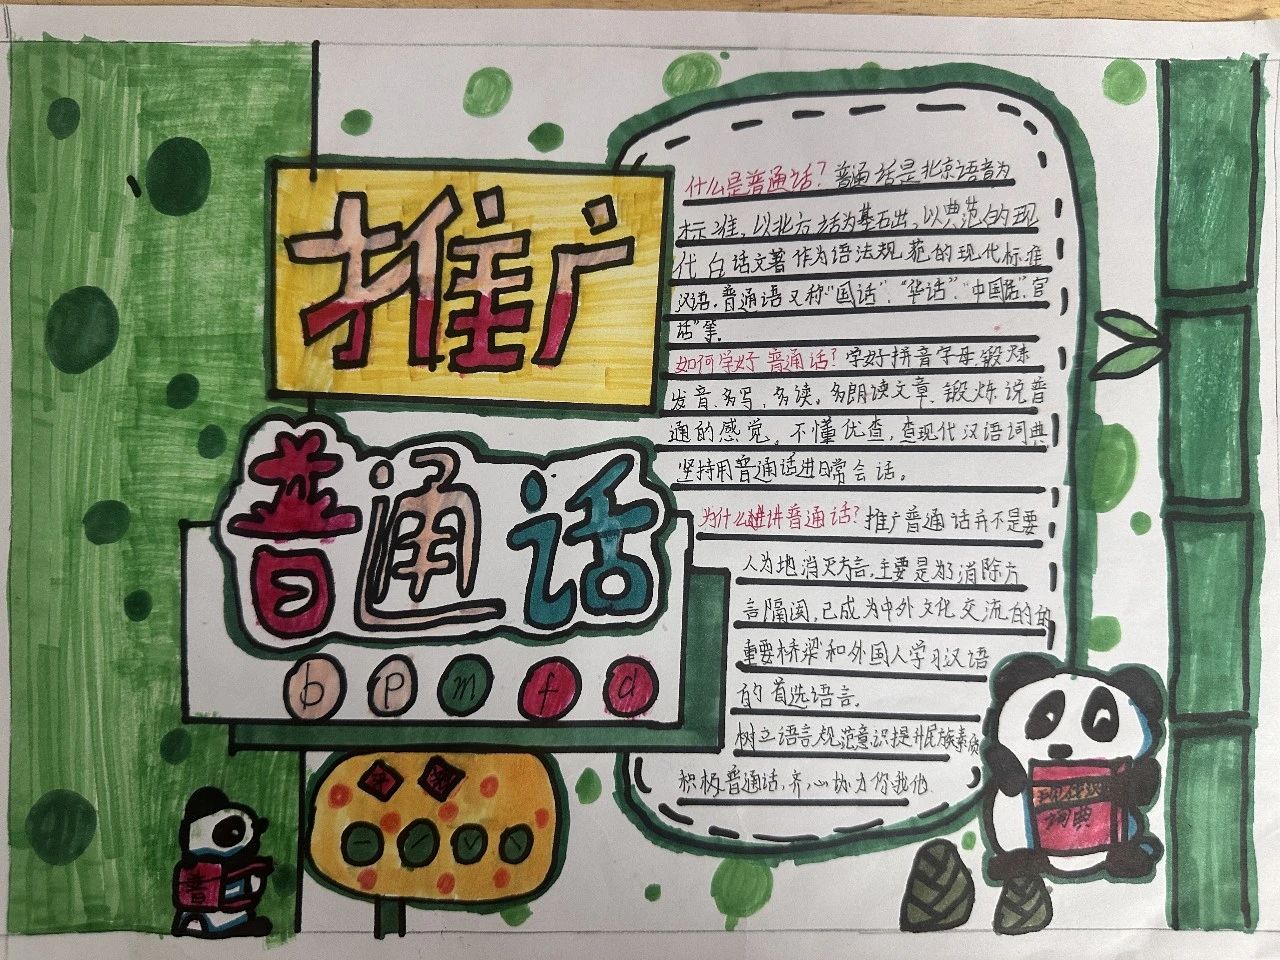 推广
普通话
b p m f d
声 调
ˉ ˊ ˇ ˋ
普
什么是普通话?普通话是北京语音为
标准,以北方话为基石出,以典范的现
代白话文著作为语法规范的现代标准
汉语,普通语又称"国话"、"华话"、"中国话"、官
话"等
如何学好普通话?字好拼音字母,锻炼
发音、多写、多读。多朗读文章、锻炼说普
通的感觉。不懂优查,查现代汉语词典
坚持用普通话进日常会话。
为什么进讲普通话?推广普通话并不是要
人为地消灭方言,主要是为了消除方
言隔阂,己成为中外文化交流的的
重要桥梁和外国人学习汉语
的首选语言。
树立语言规范意识提升民族素质
积极普通话,齐心协力你我他
现代汉
词典